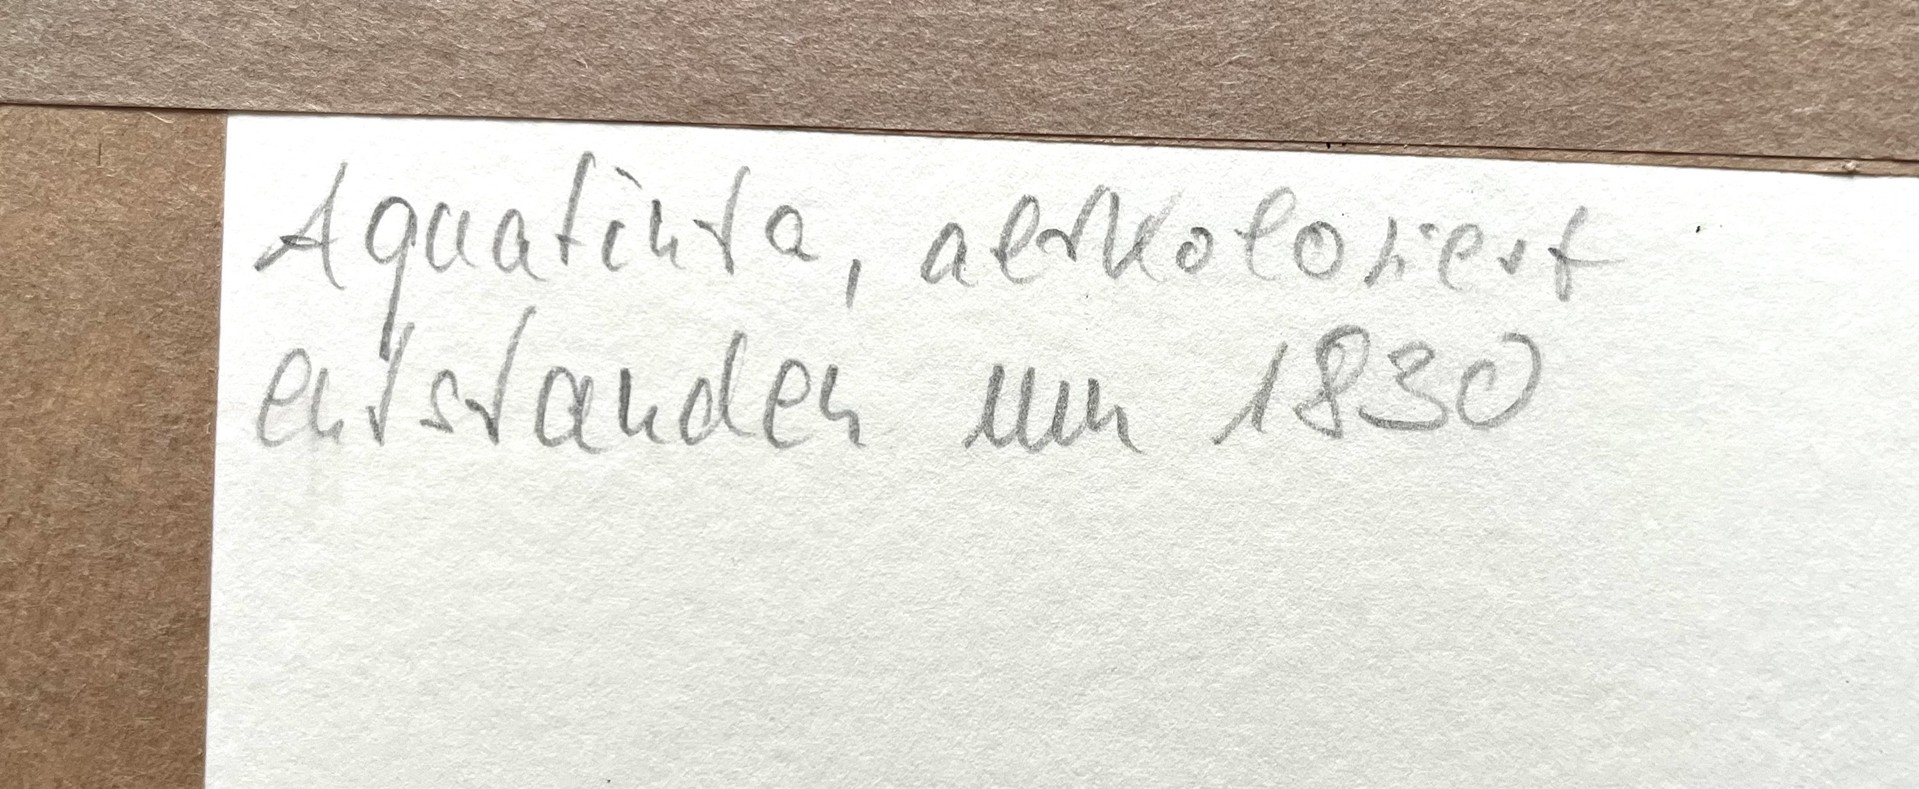 Aquatinta, altkoloriert
entstanden um 1830